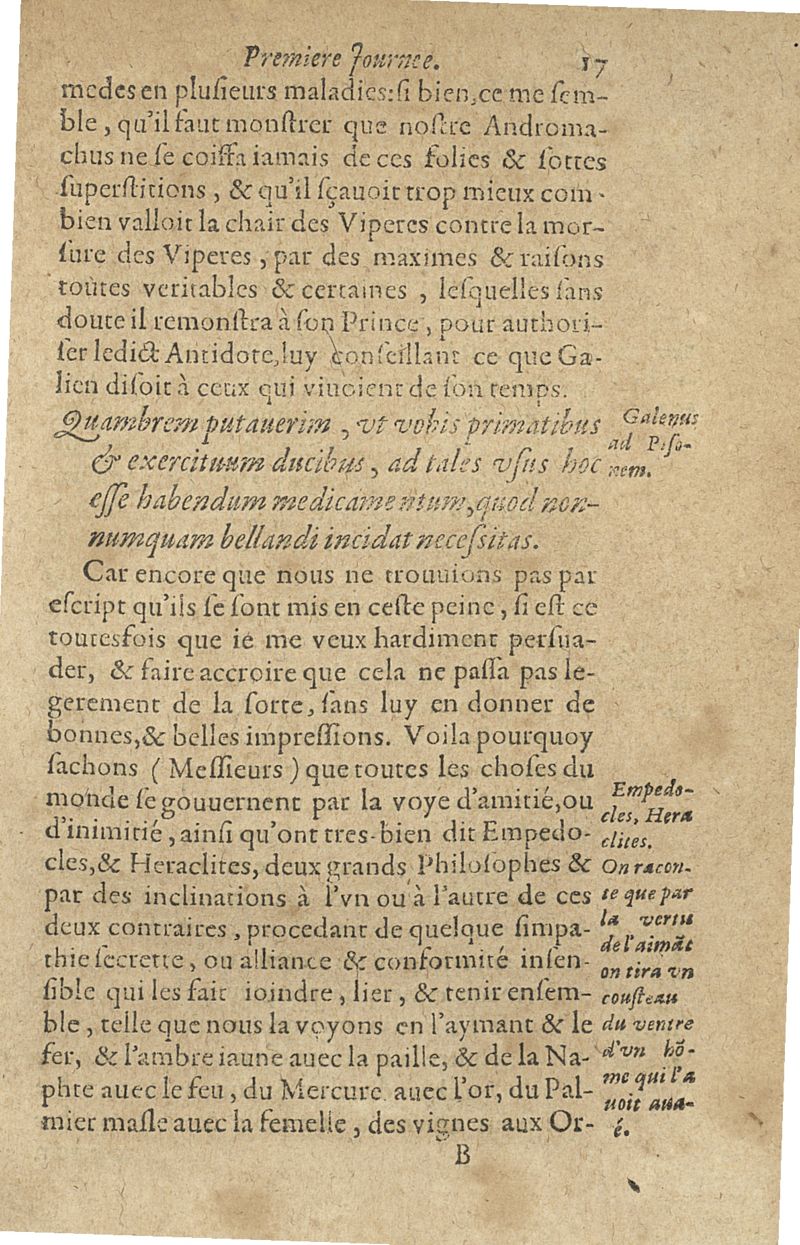 Premiere Journee. 17
medes en plusieurs maladies: si bien, ce me sem-
ble, qu'il faut monstrer que nostre Androma-
chus ne se coiffa iamais de ces folies & sottes
superstitions, & qu'il sçauoit trop mieux com-
bien valloit la chair des Viperes contre la mor-
sure des Viperes, par des maximes & raisons
toutes veritables & certaines, lesquelles sans
doute il remonstra à son Prince, pour authori-
ser ledict Antidote, luy conseillant ce que Ga-
lien disoit à ceux qui viuoient de son temps.
Quambrem putauerim, vt vobis primatibus
& exercituum ducibus, ad tales vsus hoc
esse habendum medicamentum, quod non-
numquam bellandi incidat necessitas.
Galenus
ad Piso-
nem.
Car encore que nous ne trouuions pas par
escript qu'ils se sont mis en ceste peine, si est ce
toutesfois que ie me veux hardiment persua-
der, & faire accroire que cela ne passa pas le-
gerement de la sorte, sans luy en donner de
bonnes, & belles impressions. Voila pourquoy
sachons (Messieurs) que toutes les choses du
monde se gouuernent par la voye d'amitié, ou
d'inimitié, ainsi qu'ont tres-bien dit Empedo-
cles, & Heraclites, deux grands Philosophes &
par des inclinations à l'vn ou à l'autre de ces
deux contraires, procedant de quelque simpa-
thie secrette, ou alliance & conformité insen-
sible qui les fait ioindre, lier, & tenir ensem-
ble, telle que nous la voyons en l'aymant & le
fer, & l'ambre iaune auec la paille, & de la Na-
phte auec le feu, du Mercure auec l'or, du Pal-
mier masle auec la femelle, des vignes aux Or-
Empedo-
cles, Hera
clites.
On racon-
te que par
la vertu
de l'aimãt
on tira vn
cousteau
du ventre
d'vn hõ-
me qui l'a
uoit aua-
é.
B